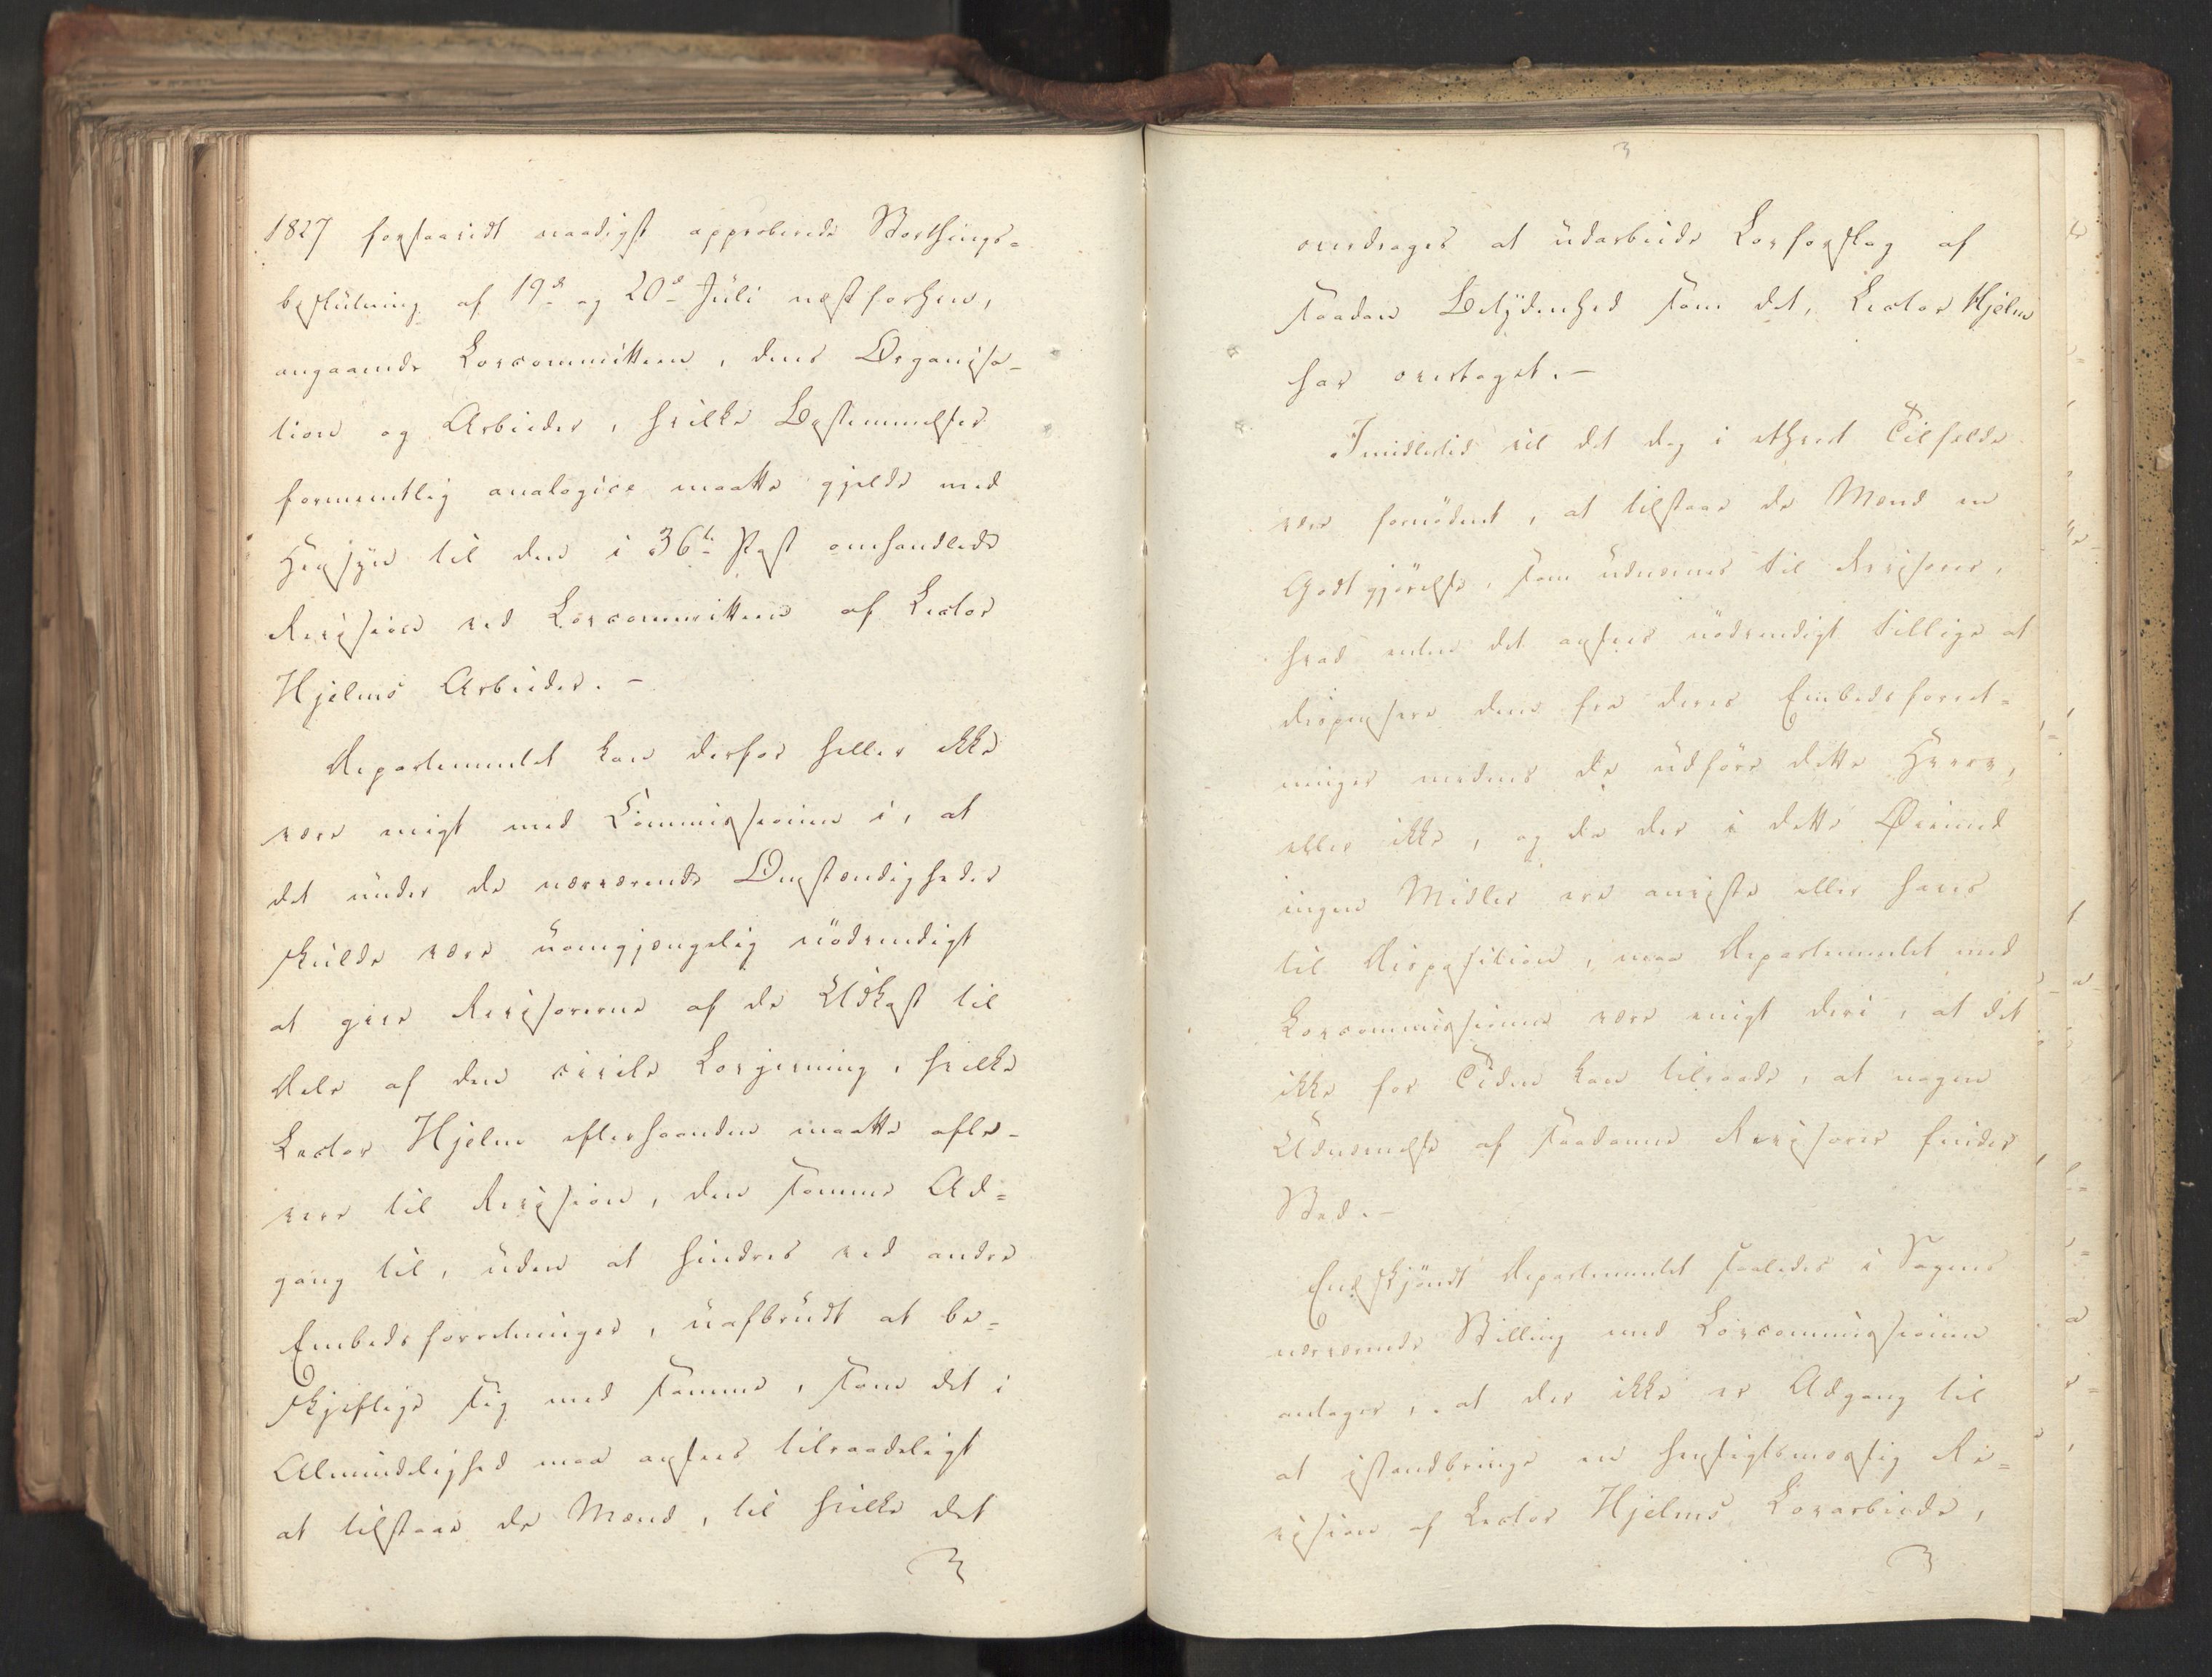 1827 forsaavidt naadigst approberede Storthings-
beslutning af 19de og 20de Juli næstforhen,
angaaende Lovcommitteen, dens Organisa-
tion og Arbeider, hvilke Bestemmelser
formeentlig analogice maatte gjelde med
Hensyn til den i 36te Post omhandlede
Revision ved Lovcommitteen af Lector
Hjelms Arbeider. -
Departementet kan derfor heller ikke
være enigt med Commissionen i, at
det under de nærværende Omstændigheder
skulde være uomgjængelig nødvendigt
at give Revisorerne af de Udkast til
Dele af den civile Lovgivning, hvilke
Lector Hjelm efterhaanden maatte afle-
vere til Revision, den samme Ad=
gang til, uden at hindres ved andre
Embedsforretninger, uafbrudt at be-
skjeftige sig med samme, som det i
Almindelighed maa ansees tilraadeligt
at tilstaae de Mænd, til hvilke det
3
overdrages at udarbeide Lovforslag af
saadan Betydenhed som det, Lector Hjelm
har overtaget. -
Imidlertid vil det dog i ethvert Tilfælde
være fornødent, at tilstaae de Mænd en
Godtgjørelse, som udnævnes til Revisorer,
hvad enten det ansees nødvendigt tillige at
dispensere dem fra deres Embedsforret=
ninger medens de udføre dette Hverv,
eller ikke, og da der i dette Øiemed
ingen Midler ere anviste eller haves
til Disposition, maa Departementet med
Lovcommissionen være enigt deri, at det
ikke for Tiden kan tilraade, at nogen
Udnævnelse af saadanne Revisorer finder
Sted. -
Endskjøndt Departementet saaledes i Sagens
nærværende Stilling med Lovcommissionen
antager, at der ikke er Adgang til
at istandbringe en hensigtsmæssig Re=
vision af Lector Hjelms Lovarbeide,